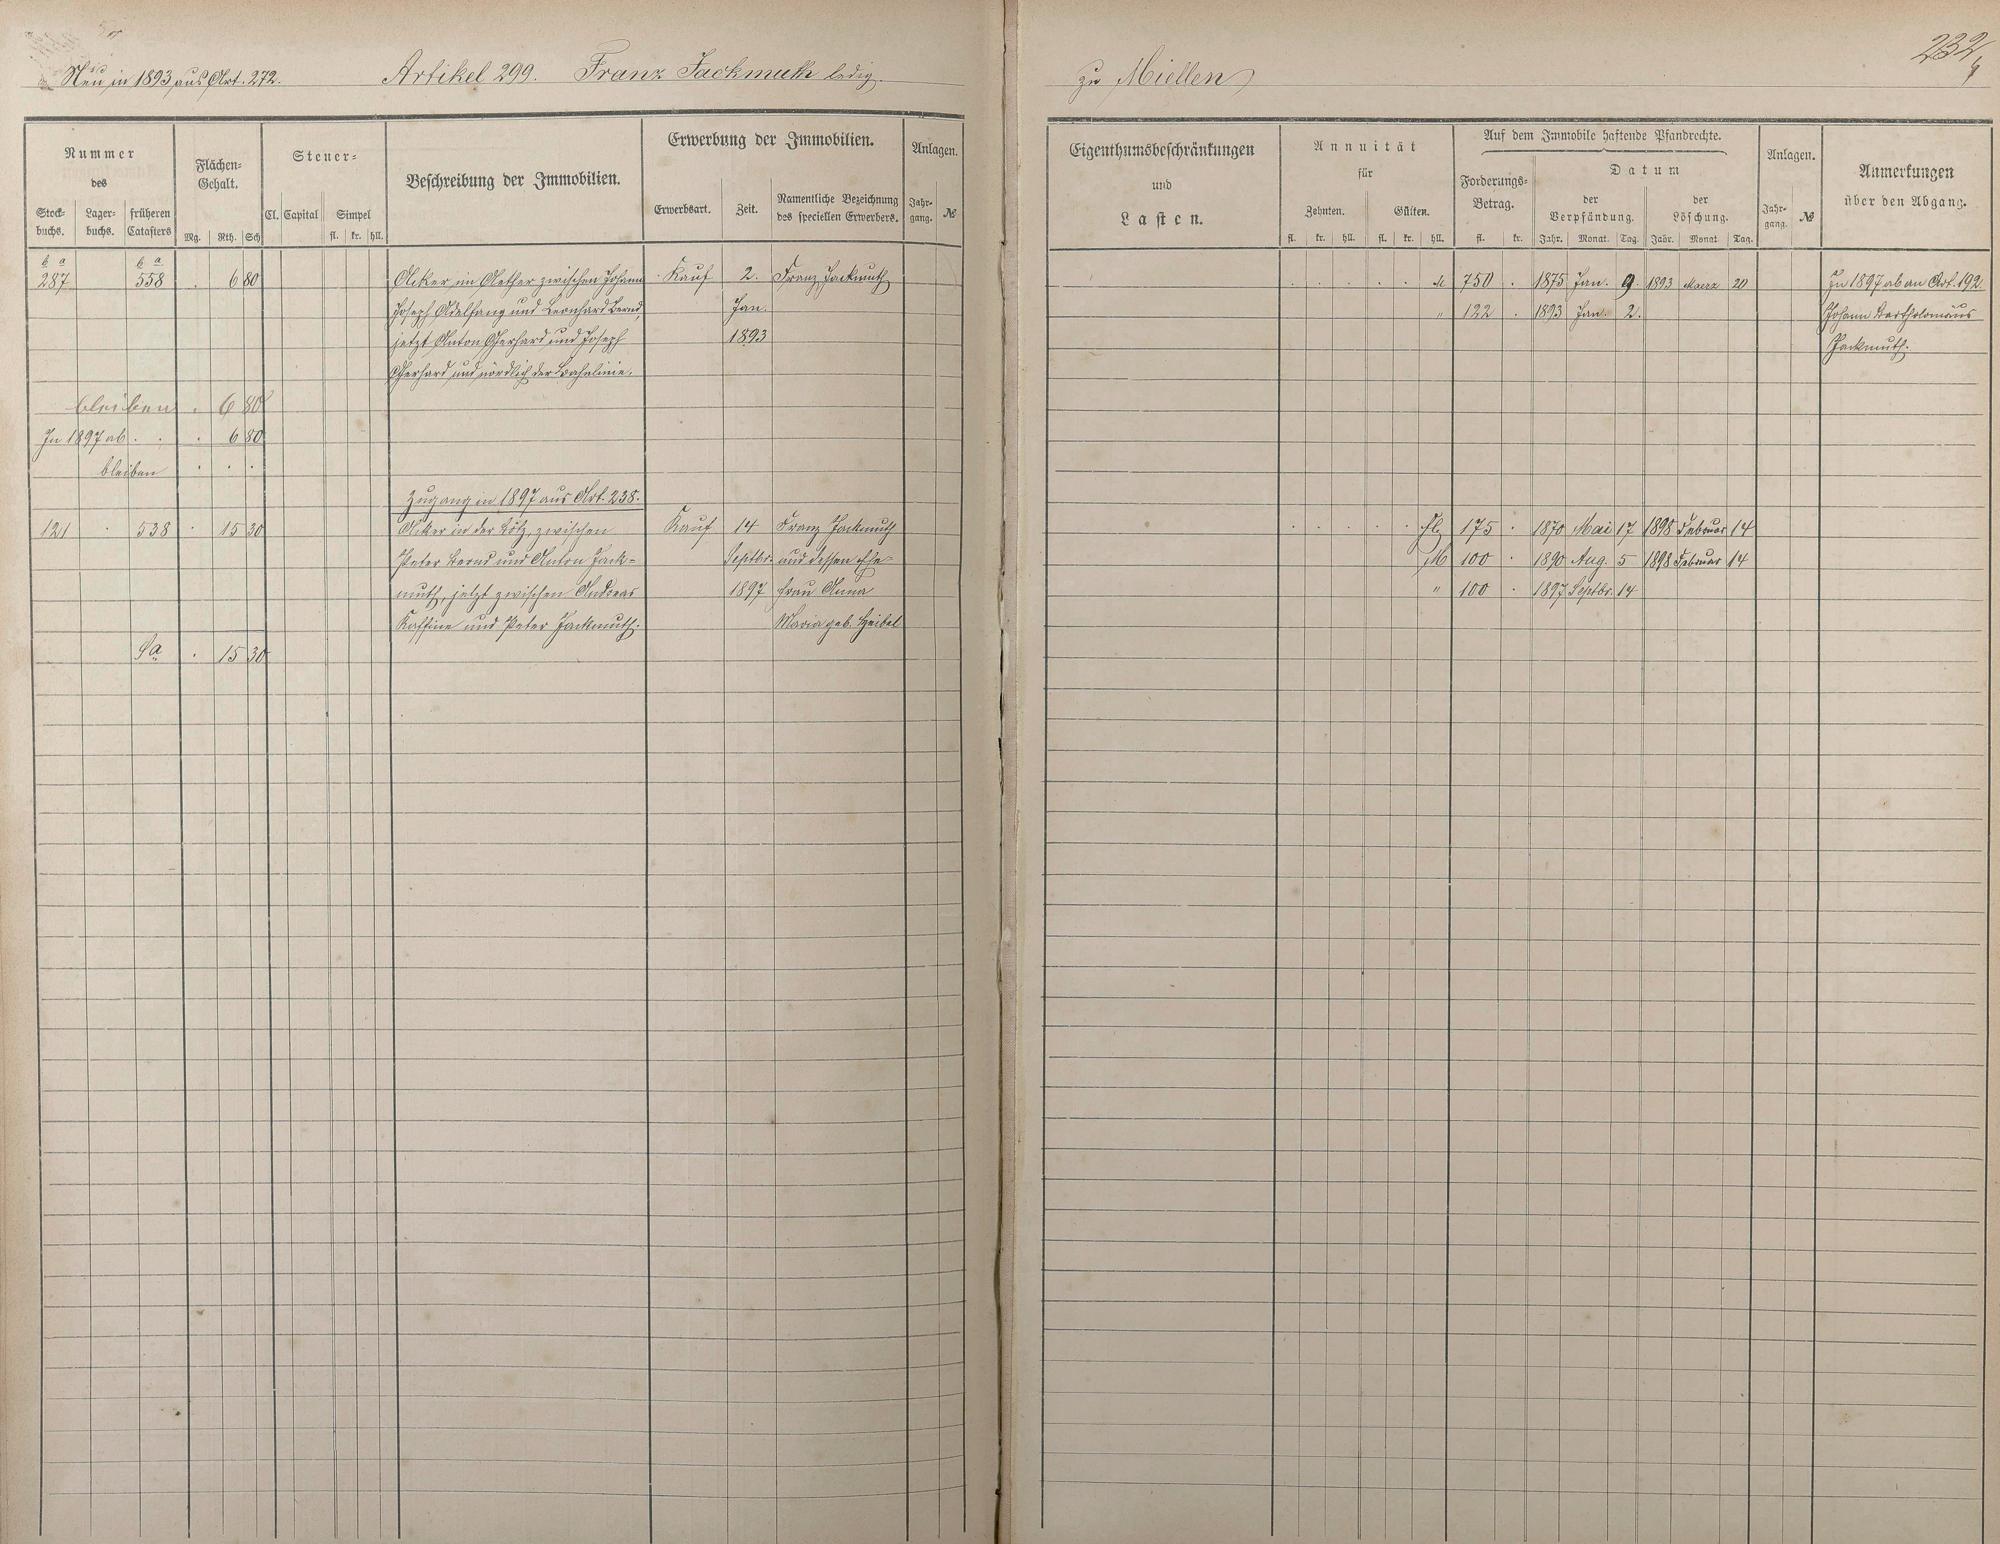 Neu in 1893 aus Art. 272. Artikel 299. Franz Jackmuth ledig.
zu Miellen
232/4
Nummer
des
Stock-
buchs.
Lager-
buchs.
früheren
Catasters
Flächen-
Gehalt.
Mg. Rth. Sch
Steuer-
Cl. Capital Simpel
fl. kr. hll.
Beschreibung der Immobilien.
Erwerbung der Immobilien.
Erwerbsart. Zeit.
Namentliche Bezeichnung
des speciellen Erwerbers.
Anlagen.
Jahr-
gang.
№
Eigenthumsbeschränkungen
und
Lasten.
Annuität
für
Zehnten. Gülten.
fl. kr. hll. fl. kr. hll.
Auf dem Immobile haftende Pfandrechte.
Forderungs-
Betrag.
fl. kr.
Datum
der
Verpfändung.
Jahr. Monat. Tag.
der
Löschung.
Jahr. Monat Tag.
Anlagen.
Jahr-
gang.
№
Anmerkungen
über den Abgang.
b a b a
287 558 . 6 80 Acker im Aether zwischen Johann Kauf 2. Franz Jackmuth
Joseph Adelfang und Leonhard Bernd, Jan.
jetzt Anton Gerhard und Joseph 1893
Gerhard und nördlich der Bahnlinie.
bleiben . 6 80
In 1897 ab . . . 6 80
bleiben . . .
Zugang in 1897 aus Art. 238.
121 . 538 . 15 30 Acker in der Lötz, zwischen Kauf 14 Franz Jackmuth
Peter Bernd und Anton Jack- Septbr. und dessen Ehe-
muth, jetzt zwischen Andreas 1897 frau Anna
Kaffine und Peter Jackmuth. Maria geb. Heibel
Sa . 15 30
M 750 . 1875 Jan. 9. 1893 Maerz 20 In 1897 ab an Art. 192.
" 122 . 1893 Jan. 2. Johann Bartholomäus
Jackmuth.
Fl. 175 . 1870 Mai 17 1898 Februar 14
M 100 . 1890 Aug. 5 1898 Februar 14
" 100 . 1897 Septbr. 14